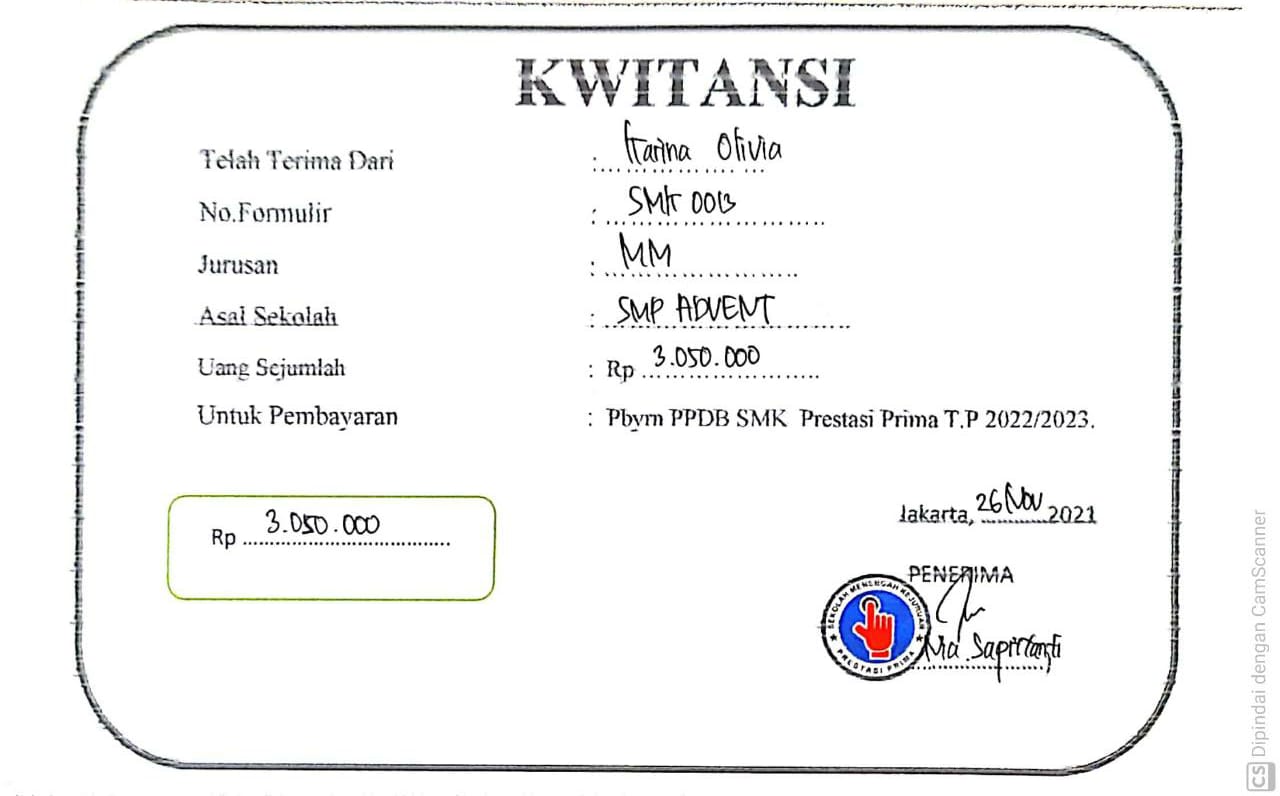 KWITANSI
Telah Terima Dari : Karina Olivia
No.Formulir : SMK 0013
Jurusan : MM
Asal Sekolah : SMP ADVENT
Uang Sejumlah : Rp 3.050.000
Untuk Pembayaran : Pbyrn PPDB SMK Prestasi Prima T.P 2022/2023.
Rp 3.050.000
Jakarta, 26 Nov 2021
PENERIMA
SEKOLAH MENENGAH KEJURUAN
PRESTASI PRIMA
Nia
Dipindai dengan CamScanner
CS